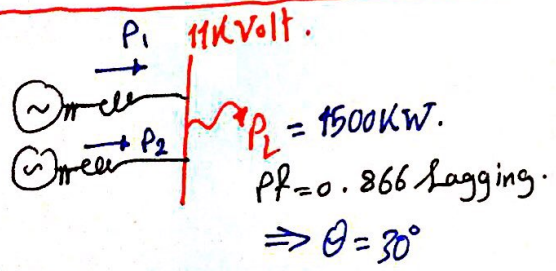 P1 11KVolt.
P2
PL = 1500KW.
Pf=0.866 Lagging.
⇒ θ = 30°